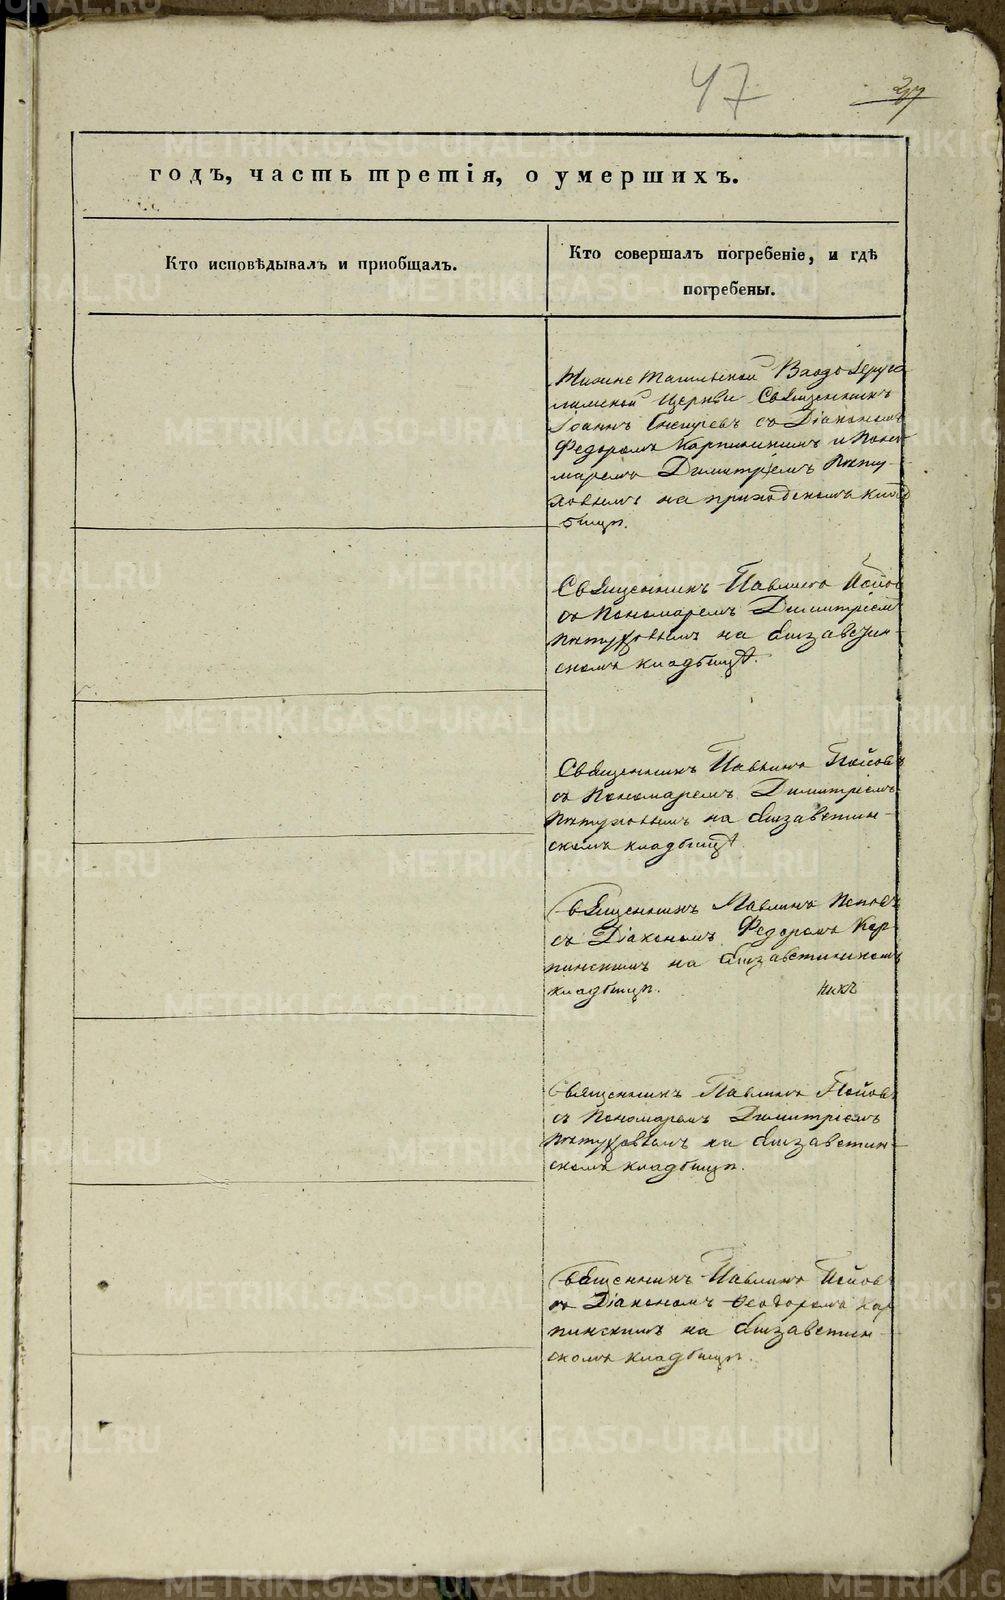 47
27
годъ, часть третія, о умершихъ.
Кто исповѣдывалъ и пріобщалъ.
Кто совершалъ погребеніе, и гдѣ
погребены.
Нижне Тагильской Входо Іеруса
лимской Церкви Священникъ
Іоаннъ съ Діакономъ
Федоромъ Карпинскимъ и Поно
маремъ Димитріемъ Пѣту-
ховымъ на приходскомъ клад
бищѣ.
Священникъ Павлинъ Попов
съ Пономаремъ Димитріемъ
Пѣтуховымъ на Елизаветин-
скомъ кладбищѣ.
Священникъ Павлинъ Поповъ
съ Пономаремъ Димитріемъ
Пѣтуховымъ на Елизаветин-
скомъ кладбищѣ
Священникъ Павлинъ Поповъ
съ Діакономъ Федоромъ Кар
пинскимъ на Елизаветинскомъ
кладбищѣ.
Священникъ Павлинъ Попов
съ Пономаремъ Димитріемъ
Пѣтуховымъ на Елизаветин-
скомъ кладбищѣ.
Священникъ Павлинъ Попов
съ Діакономъ Феодоромъ Кар
пинскимъ на Елизаветин-
скомъ кладбищѣ.
METRIKI.GASO-URAL.RU